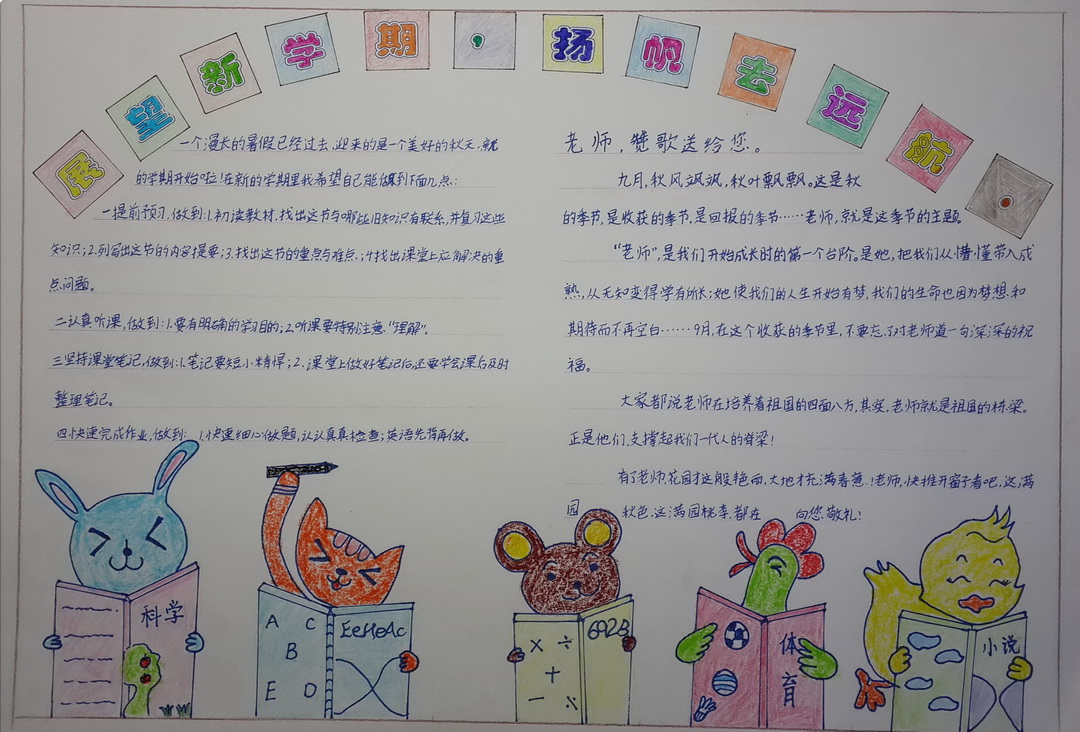 展望新学期，扬帆去远航。
一个漫长的暑假已经过去，迎来的是一个美好的秋天，新
的学期开始啦！在新的学期里我希望自己能做到下面几点：
一提前预习，做到：1.初读教材，找出这节与哪些旧知识有联系，并复习这些
知识；2.列写出这节的内容提要；3.找出这节的重点与难点；4找出课堂上应解决的重
点问题。
二认真听课，做到：1.要有明确的学习目的；2.听课要特别注意“理解”。
三坚持课堂笔记，做到：1.笔记要短小精悍；2.课堂上做好笔记后，还要学会课后及时
整理笔记。
四快速完成作业，做到：1.快速细心做题，认认真真检查；英语先背再做。
老师，赞歌送给您。
九月，秋风飒飒，秋叶飘飘。这是秋
的季节，是收获的季节，是回报的季节……老师，就是这季节的主题。
“老师”，是我们开始成长时的第一个台阶。是她，把我们从懵懂带入成
熟，从无知变得学有所长；她使我们的人生开始有梦，我们的生命也因为梦想和
期待而不再空白……9月，在这个收获的季节里，不要忘了对老师道一句深深的祝
福。
大家都说老师在培养着祖国的四面八方，其实，老师就是祖国的栋梁。
正是他们，支撑起我们一代人的脊梁！
有了老师，花园才这般艳丽，大地才充满春意！老师，快推开窗子看吧，这满
园 秋色，这满园桃李，都在 向您敬礼！
科学
A C
B
E D
EeHeAc
× ÷
+
- ×
6928
体
育
小说